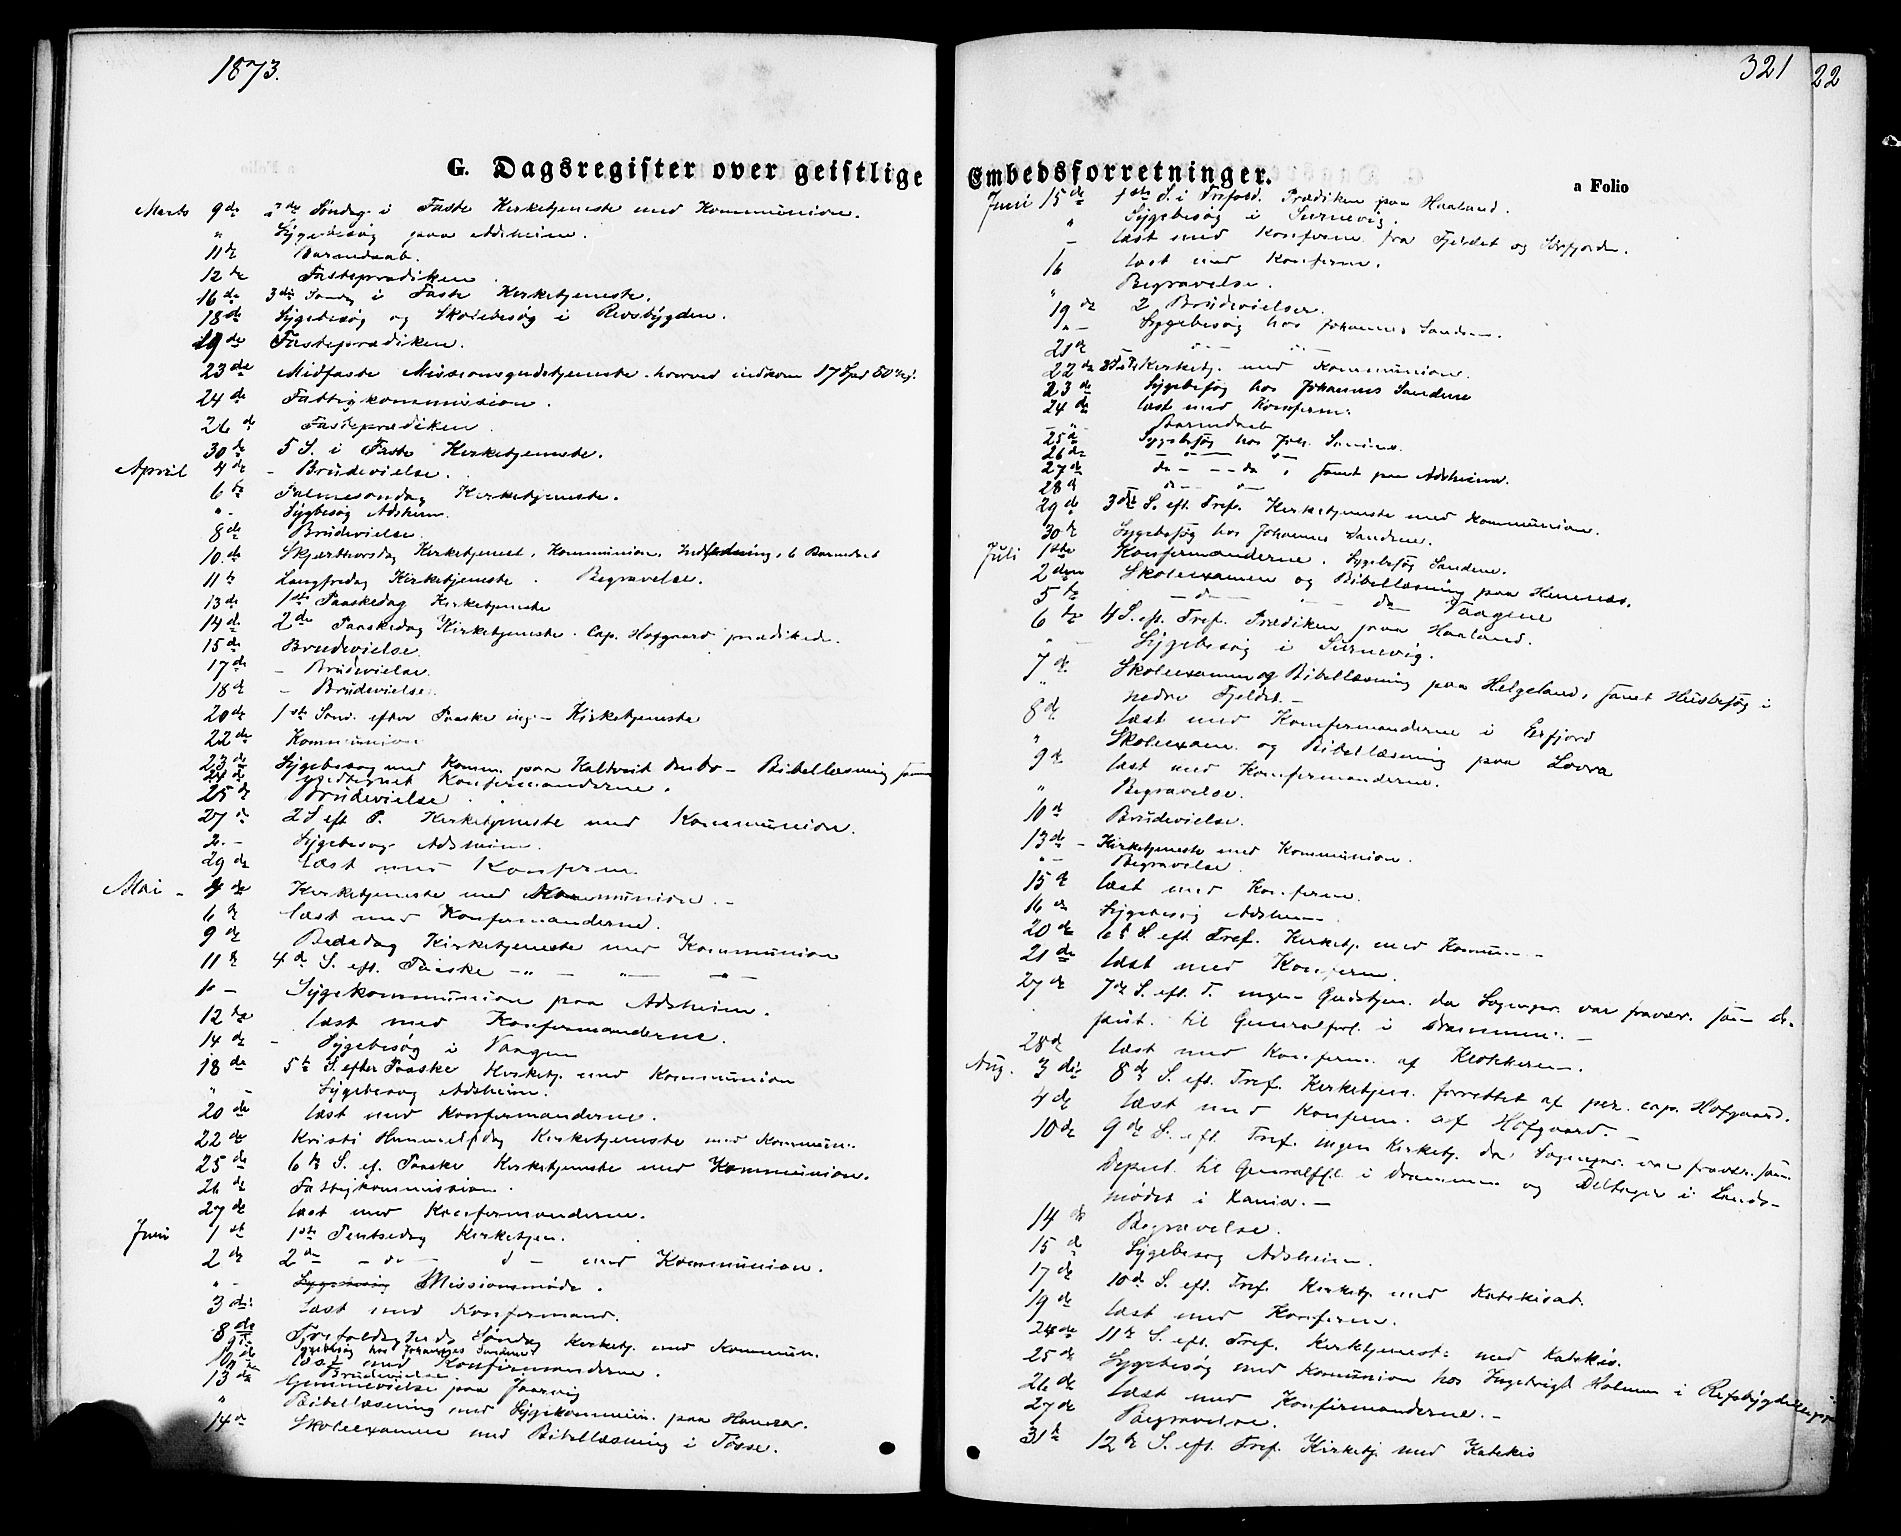 1873.
G. Dagsregister over geistlige
Marts 9de 2de Søndag i Faste Kirketjeneste med Kommunion.
" Sygebesøg paa Adsheim.
11te Barnedaab.
12te Fasteprædiken.
16de 3die Søndag i Faste Kirketjeneste.
18de Sygebesøg og Skolebesøg i Revsbygden.
19de Fasteprædiken.
23de Midfaste Missionsgudstjeneste. hvorved indkom 17 Spd 50
24de Fattigkommission.
26de Fasteprædiken.
30te 5 S. i Faste Kirketjeneste.
April 4de - Brudevielse.
6te Palmesøndag Kirketjeneste.
" - Sygbesøg Adsheim.
8de Brudevielse.
10de Skjærthorsdag Kirketjenest, Kommunion, 6 Barnedaab
11te Langfredag Kirketjeneste. Begravelse.
13de 1ste Paaskedag Kirketjeneste
14de 2de Paaskedag Kirketjeneste. Cap. Hofgaard prædikede.
15de Brudevielse.
17de - Brudevielse.
18de - Brudevielse.
20de 1ste Sønd. efter Paaske ing. - Kirketjeneste
22de Kommunion
23de Sygebesøg med Komm. paa Kaltveit - Bibellæsning
24de Konfermanderne.
25de Brudevielse.
27de 2 S eft P. Kirketjeneste med Kommunion.
" - Sygebesøg Adsheim.
29de læst med Konferm.
Mai - 4de Kirketjeneste med Kommunion. -
6te læst med Konfermanderne.
9de Bededag Kirketjeneste med Kommunion
11te 4de S. eft. Paaske - " - " - " -
" - Sygekommunion paa Adsheim.
12te læst med Konfermanderne.
14de - Sygebesøg i Vaagen
18de 5te S. efter Paaske Kirketj. med Kommunion
" - Sygebesøg Adsheim.
20de læst med Konfermanderne.
22de Kristi Himmelfsdag Kirketjeneste med Kommun.
25de 6te S. ef. Paaske Kirketjeneste med Kommunion.
26de Fattigkommission.
27de læst med Konfermanderne.
Juni 1ste 1ste Pentsedag Kirketjen.
2de 2de - do - d - med Kommunion.
" - Sygebesøg Missionsmøde.
3die læst med Konfermand.
8de Trefoldighedssøndag Kirketj. med Kommun.
9de Sygebesøg hos Johannes Sandene
10de læst med Konfirmanderne.
Brudevielse.
13de paa Jaarvig
" Bibellæsning med Sygekommun. paa Hamrar.
14de Skoleexamen med Bibellæsning i Tøsse.
321
22
Embedsforretninger.
a Folio
Juni 15de 1ste S. i Trefold. Prædiken paa Haaland.
" Sygebesøg i Survevig.
- læst med Konferm. fra Fjeldet og
16 læst med Konferm.
" Begravelse.
19de 2 Brudevielser.
" - Sygebesøg hos Johannes Sandene.
21de " - " -
22de Kirketj. med Kommunion.
23de Sygebesøg hos Johannes Sandene
24de læst med Konferm.
- " - Barnedaab
25de Sygebesøg hos Joh. Sandene.
26de - " - " -
27de do - - do, samt paa Adsheim.
28de - " - " -
29de 3die S. eft. Tref. Kirketjeneste med Kommunion.
30te Sygebesøg hos Johannes Sandene.
Juli 1ste Konfermanderne. Sygebesøg Sandene.
2den Skoleexamen og Bibellæsning paa Himnæs.
5te - do - do Vaagene
6te 4 S. ef. Tref. Prædiken paa Haaland.
" Sygebesøg i Survevig.
7de Skoleexamen og Bibellæsning paa Helgeland, samt Husbesøg i
" nedre Fjeldet -
8de læst med Konfermanderne i Erfjord
" Skoleexam. og Bibellæsning paa Lovra
9de læst med Konfermanderne.
" Begravelse.
10de Brudevielse.
13de - Kirketjeneste med Kommunion.
" - Begravelse.
15de læst med Konferm.
16de Sygebesøg Adsheim.
20de 6te S. eft. Tref. Kirketj. med Kommun -
21de læst med Konferm.
27de 7de S. eft. T. ingen Gudstjen. da Sognepr. var fravær. som De-
put. til Generalforl. i Drammen. -
28de læst med Konferm. af Klokkeren.
Aug. 3die 8de S. eft. Tref. Kirketjen. forrettet af per. cap. Hofgaard.
4de læst med Konferm. af Hofgaard. -
10de 9de S. eft. Tref. ingen Kirketj. da Sognepr. var fravær. som
Deput. til Generalffl. i Drammen og Deltager i Lands-
mødet i Xania. -
14de Begravelse.
15de Sygebesøg Adsheim.
17de 10de S. eft. Tref. Kirketj. med Katekisat.
19de læst med Konferm.
24de 11te S. eft. Tref. Kirketjenest: med Katekis.
25de Sygebesøg med Kommunion hos Ingebrigt Holmen i Refsbygden
26de læst med Konfirmanderne. -
27de Begravelse.
31te 12te S. eft. Tref. Kirketj. med Katekis